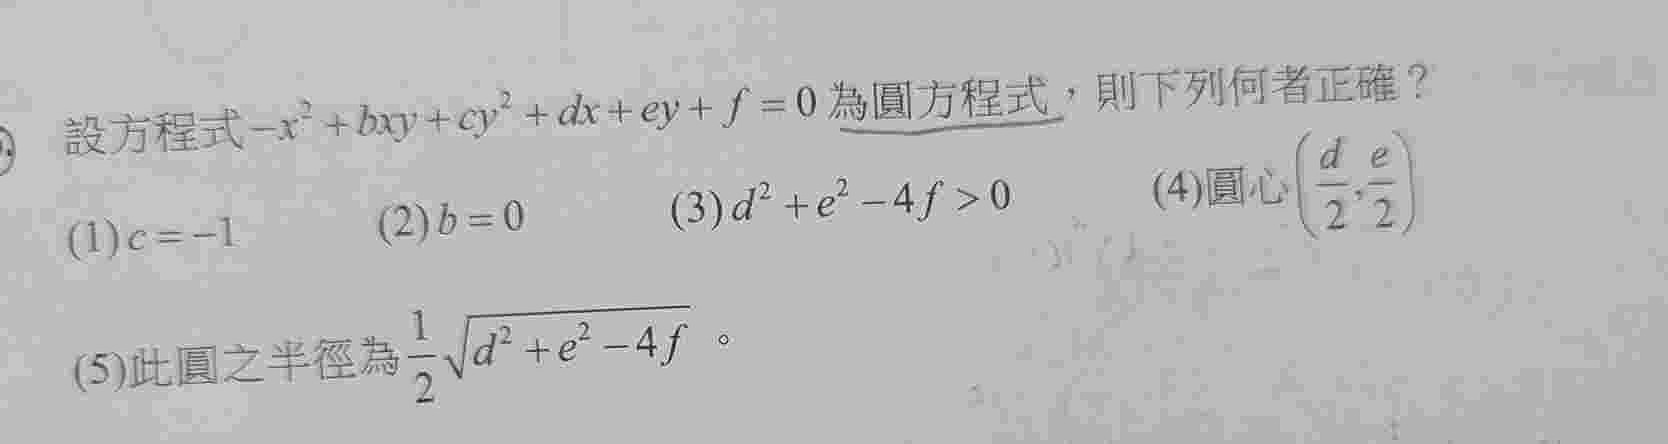 設方程式−x²+bxy+cy²+dx+ey+f=0為圓方程式，則下列何者正確？
(1)c=−1 (2)b=0 (3)d²+e²−4f>0 (4)圓心(d/2,e/2)
(5)此圓之半徑為1/2√(d²+e²−4f)。